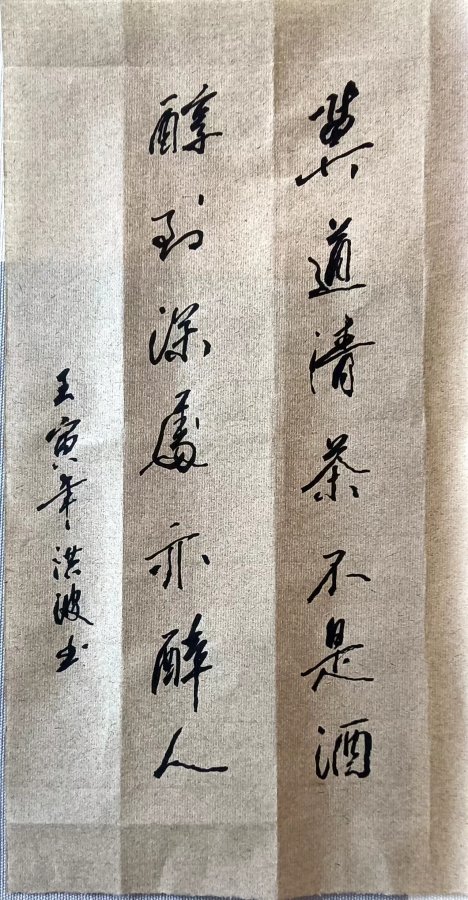 莫道清茶不是酒
醇到深處亦醉人
壬寅年洪波书